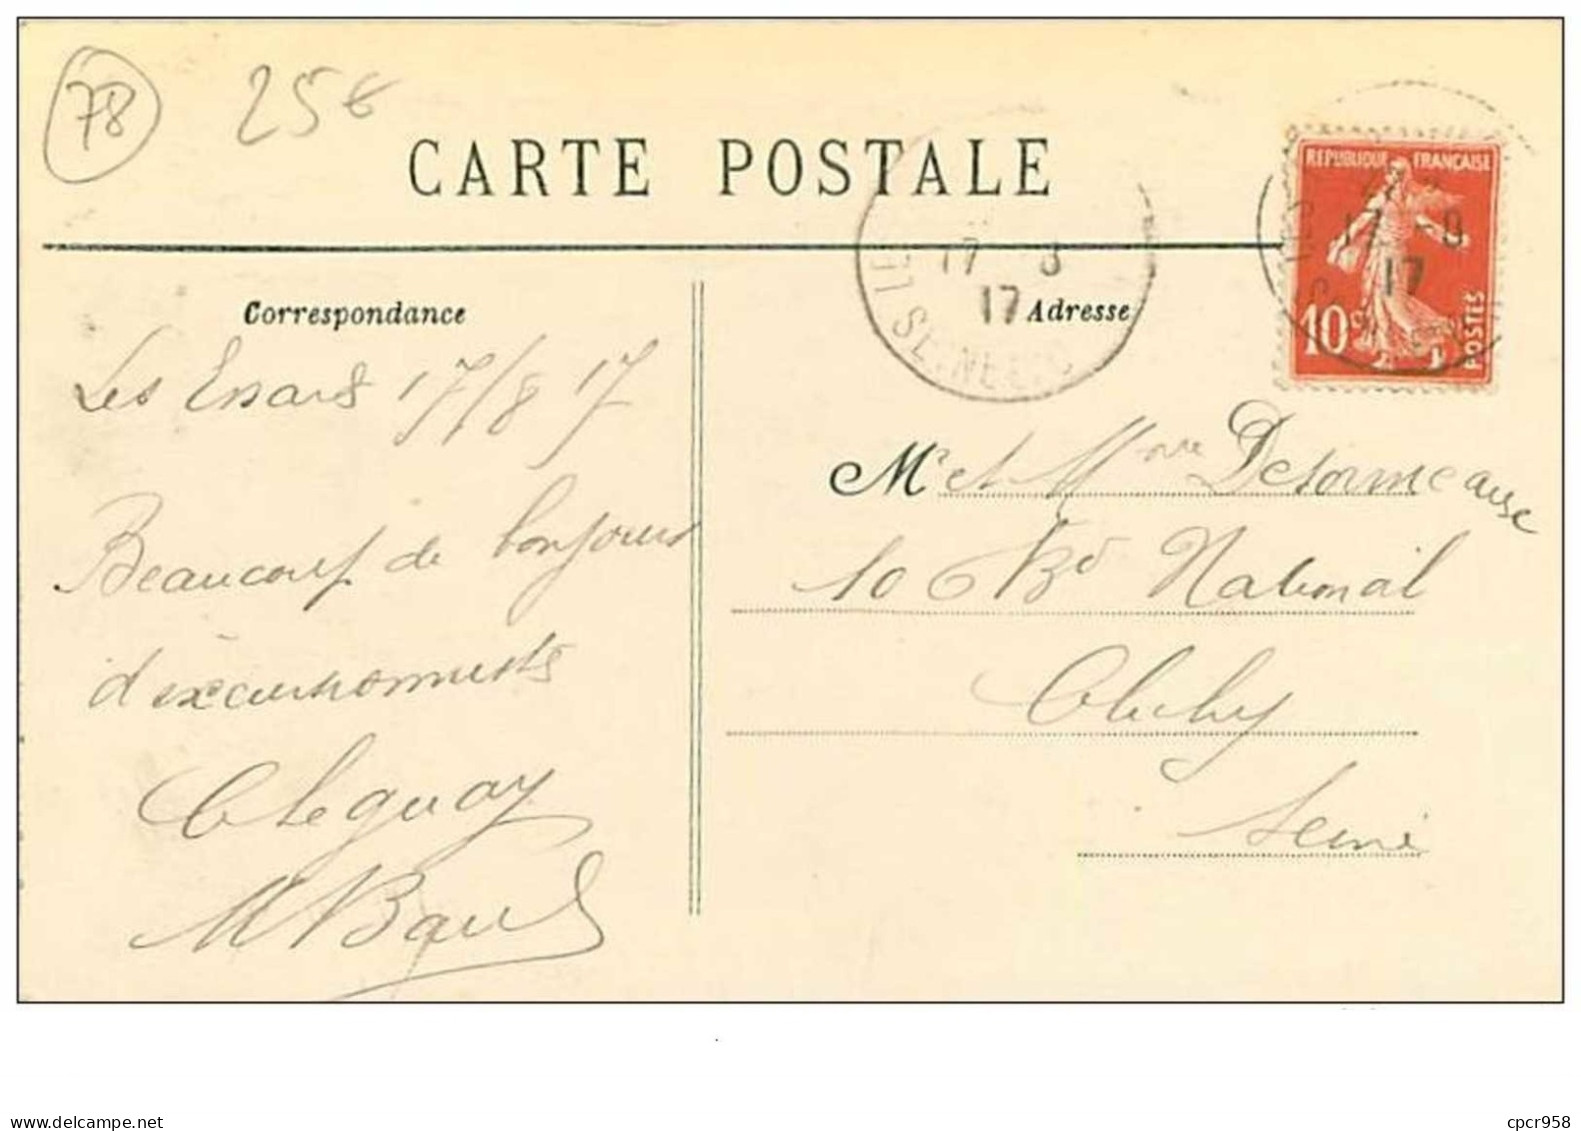 78
25€
CARTE POSTALE
REPUBLIQUE FRANÇAISE
17 - 8
17
17 - 8
17
10c
POSTES
Correspondance
Adresse
Les Essarts 17/8 17
Mr et Mme Desormeaux
Beaucoup de bonjours
106 Bd National
d'excursionnists
Clichy
Leguay
Seine
www.delcampe.net
cpcr958